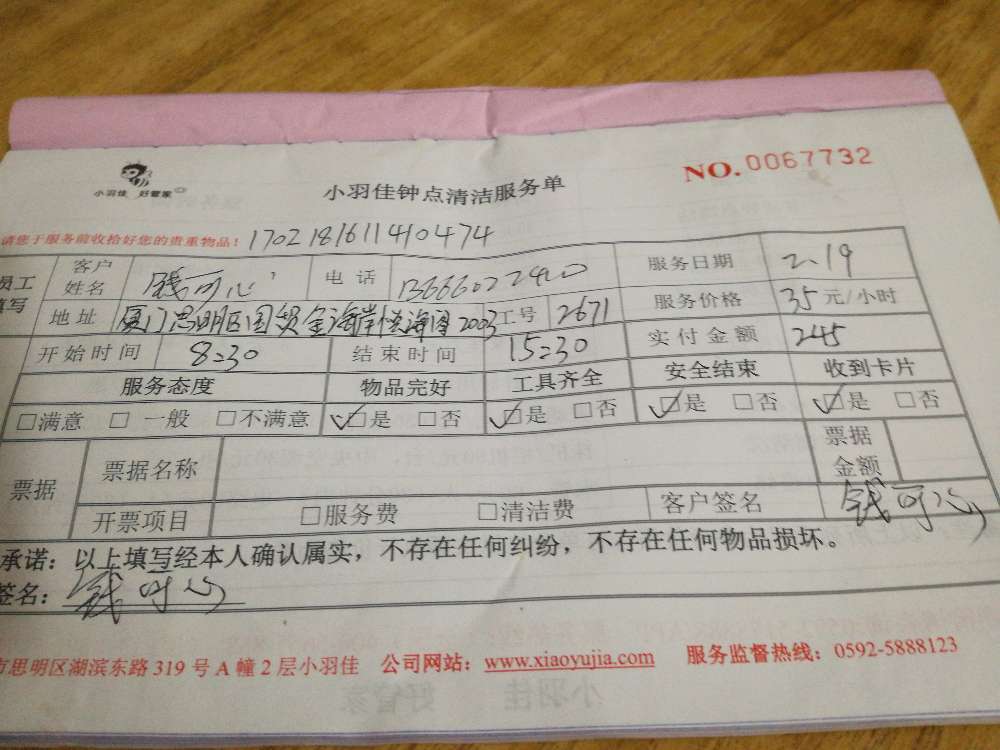 小羽佳 好管家
小羽佳钟点清洁服务单
NO.0067732
请您于服务前收拾好您的贵重物品！ 170218161141 0474
员工填写 客户姓名 钱可心 电话 13666022420 服务日期 2.19
地址 厦门思明区国贸金海岸 海阁2003 工号 2671 服务价格 35 元/小时
开始时间 8:30 结束时间 15:30 实付金额 245
服务态度 物品完好 工具齐全 安全结束 收到卡片
□满意 □一般 □不满意 ☑是 □否 ☑是 □否 ☑是 □否 ☑是 □否
票据 票据名称 票据金额
开票项目 □服务费 □清洁费 客户签名 钱可心
承诺：以上填写经本人确认属实，不存在任何纠纷，不存在任何物品损坏。
签名：钱可心
市思明区湖滨东路 319 号 A 幢 2 层小羽佳 公司网站：www.xiaoyujia.com 服务监督热线：0592-5888123